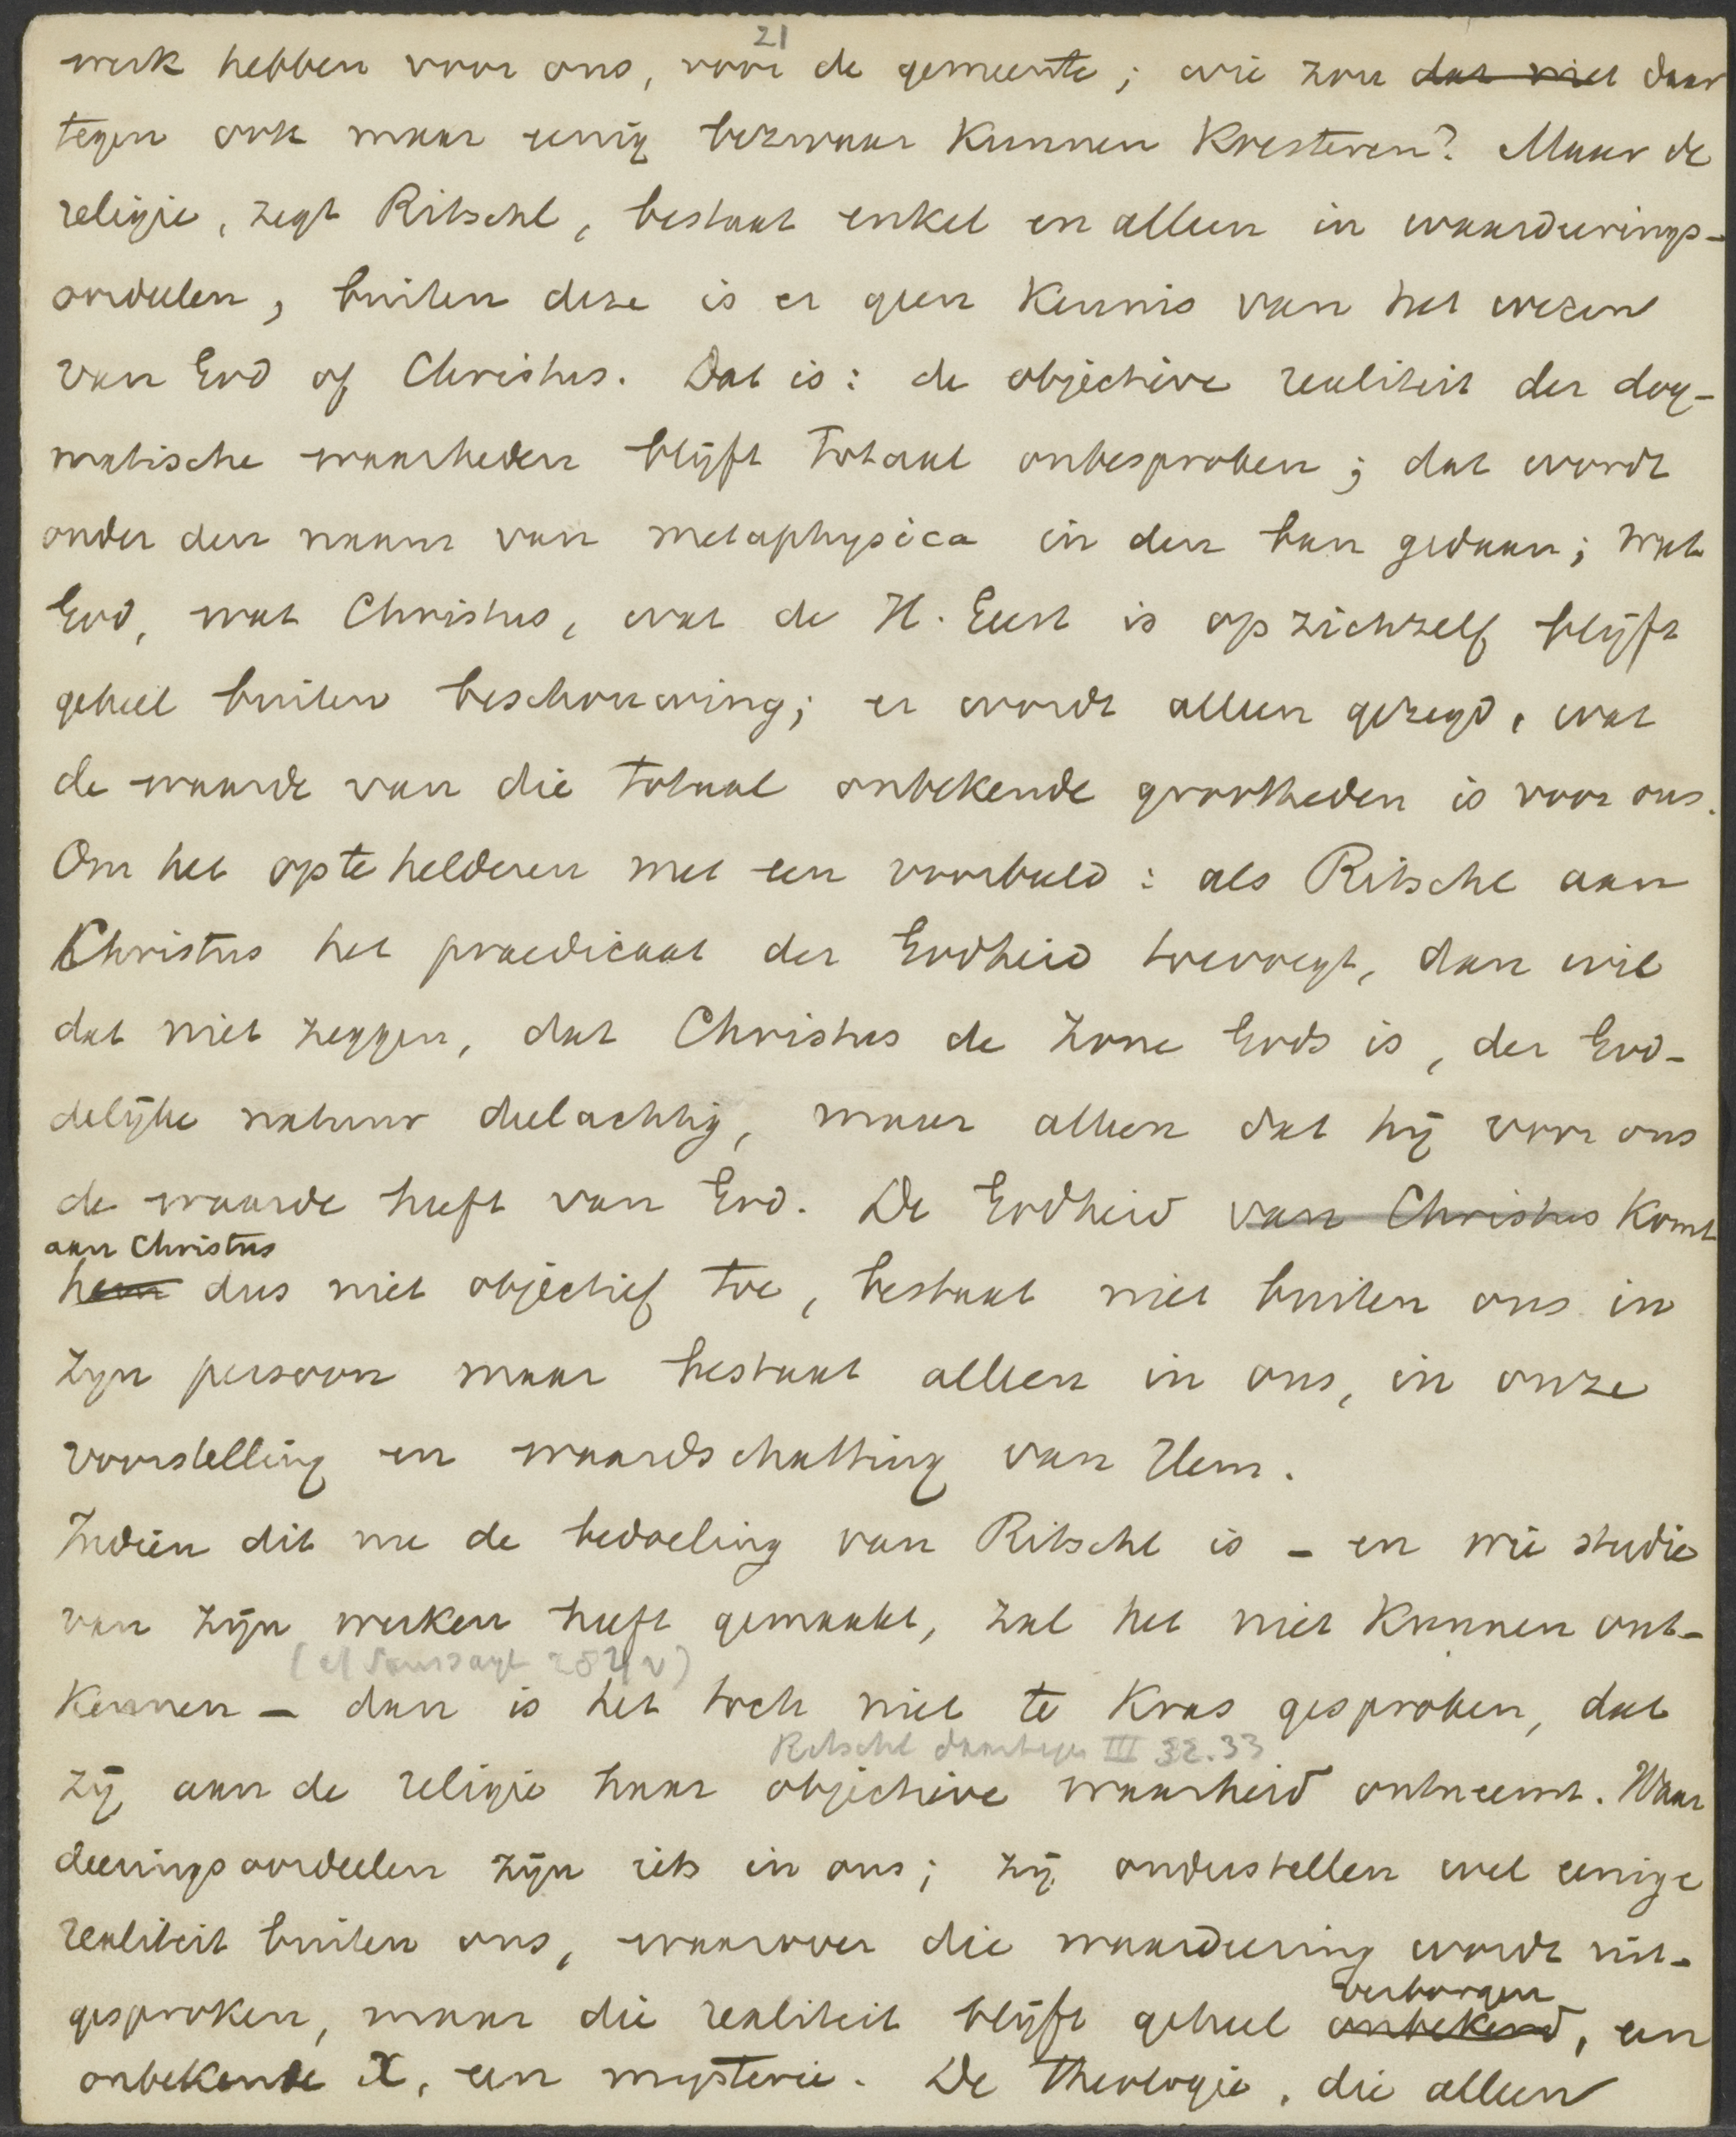 21
werk hebben voor ons, voor de gemeente; wie zou dat niet daar
tegen ook maar eenig bezwaar kunnen koesteren? Maar de
religie, zegt Ritschl, bestaat enkel en alleen in waardeerings-
oordeelen, buiten deze is er geen kennis van het wezen
van God of Christus. Dat is: de objectieve realiteit der dog-
matische waarheden blijft totaal onbesproken; dat wordt
onder den naam van metaphysica in den ban gedaan; wat
God, wat Christus, wat de H. Geest is op zichzelf blijft
geheel buiten beschouwing; er wordt alleen gezegd, wat
de waarde van die totaal onbekende grootheden is voor ons.
Om het op te helderen met een voorbeeld: als Ritschl aan
Christus het praedicaat der Godheid toevoegt, dan wil
dat niet zeggen, dat Christus de Zone Gods is, der God-
delijke natuur deelachtig, maar alleen dat hij voor ons
de waarde heeft van God. De Godheid van Christus komt
aan Christus
hem dus niet objectief toe, bestaat niet buiten ons in
zijn persoon maar bestaat alleen in ons, in onze
voorstelling en waardschatting van Hem.
Indien dit nu de bedoeling van Ritschl is – en wie studie
van zijn werken heeft gemaakt, zal het niet kunnen ont-
kennen – dan is het toch niet te kras gesproken, dat
Ritschl daartegen III 32.33
zij aan de religie haar objectieve waarheid ontneemt. Waar
deeringsoordeelen zijn iets in ons; zij onderstellen wel eenige
realiteit buiten ons, waarover die waardeering wordt uit-
verborgen
gesproken, maar die realiteit blijft geheel onbekend, een
onbekende X, een mysterie. De theologie, die alleen